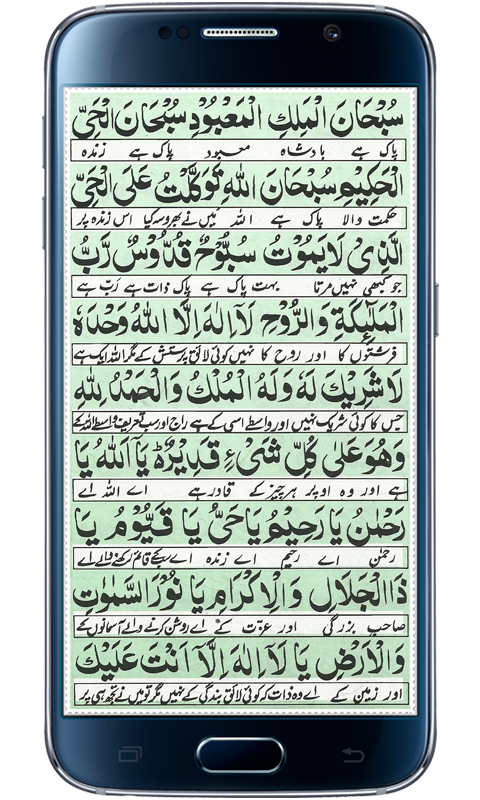 سُبْحَانَ الْمَلِكِ الْمَعْبُوْدِ سُبْحَانَ الْحَيِّ
پاک ہے بادشاہ معبود پاک ہے زندہ
الْحَكِيْمِ سُبْحَانَ اللّٰهِ تَوَكَّلْتُ عَلَى الْحَيِّ
حکمت والا پاک ہے اللہ میں نے بھروسہ کیا اس زندہ پر
الَّذِىْ لَا يَمُوْتُ سُبُّوْحٌ قُدُّوْسٌ رَّبُّ
جو کبھی نہیں مرتا بہت پاک ہے پاک ذات ہے رب ہے
الْمَلٰٓئِكَةِ وَالرُّوْحِ لَا اِلٰهَ اِلَّا اللّٰهُ وَحْدَهٗ
فرشتوں کا اور روح کا نہیں کوئی لائق پرستش کے مگر اللہ ایک ہے
لَا شَرِيْكَ لَهٗ وَلَهُ الْمُلْكُ وَالْحَمْدُ لِلّٰهِ
جس کا کوئی شریک نہیں اور واسطے اسی کے ہے راج اور سب تعریف واسطے اللہ کے
وَهُوَ عَلٰى كُلِّ شَىْءٍ قَدِيْرٌ يَآ اَللّٰهُ يَا
ہے اور وہ اوپر ہر چیز کے قادر ہے اے اللہ اے
رَحْمٰنُ يَا رَحِيْمُ يَا حَىُّ يَا قَيُّوْمُ يَا
رحمٰن اے رحیم اے زندہ اے قائم رکھنے والے اے
ذَا الْجَلَالِ وَالْاِكْرَامِ يَا نُوْرَ السَّمٰوٰتِ
صاحب بزرگی اور عزت کے اے روشن کرنے والے آسمانوں کے
وَالْاَرْضِ يَا لَآ اِلٰهَ اِلَّآ اَنْتَ عَلَيْكَ
اور زمین کے اے وہ ذات کہ کوئی لائق بندگی کے نہیں مگر تو میں نے تجھ ہی پر